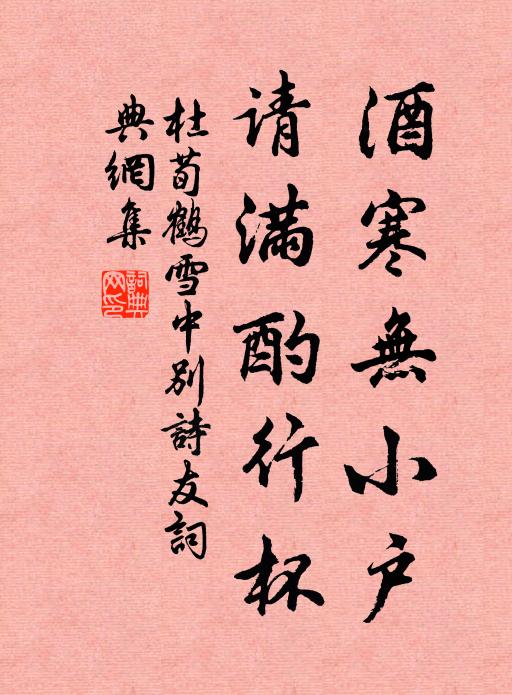 酒寒無小户
请满酌行杯
杜荀鶴雪中别詩友詞
典網集
詞典网印